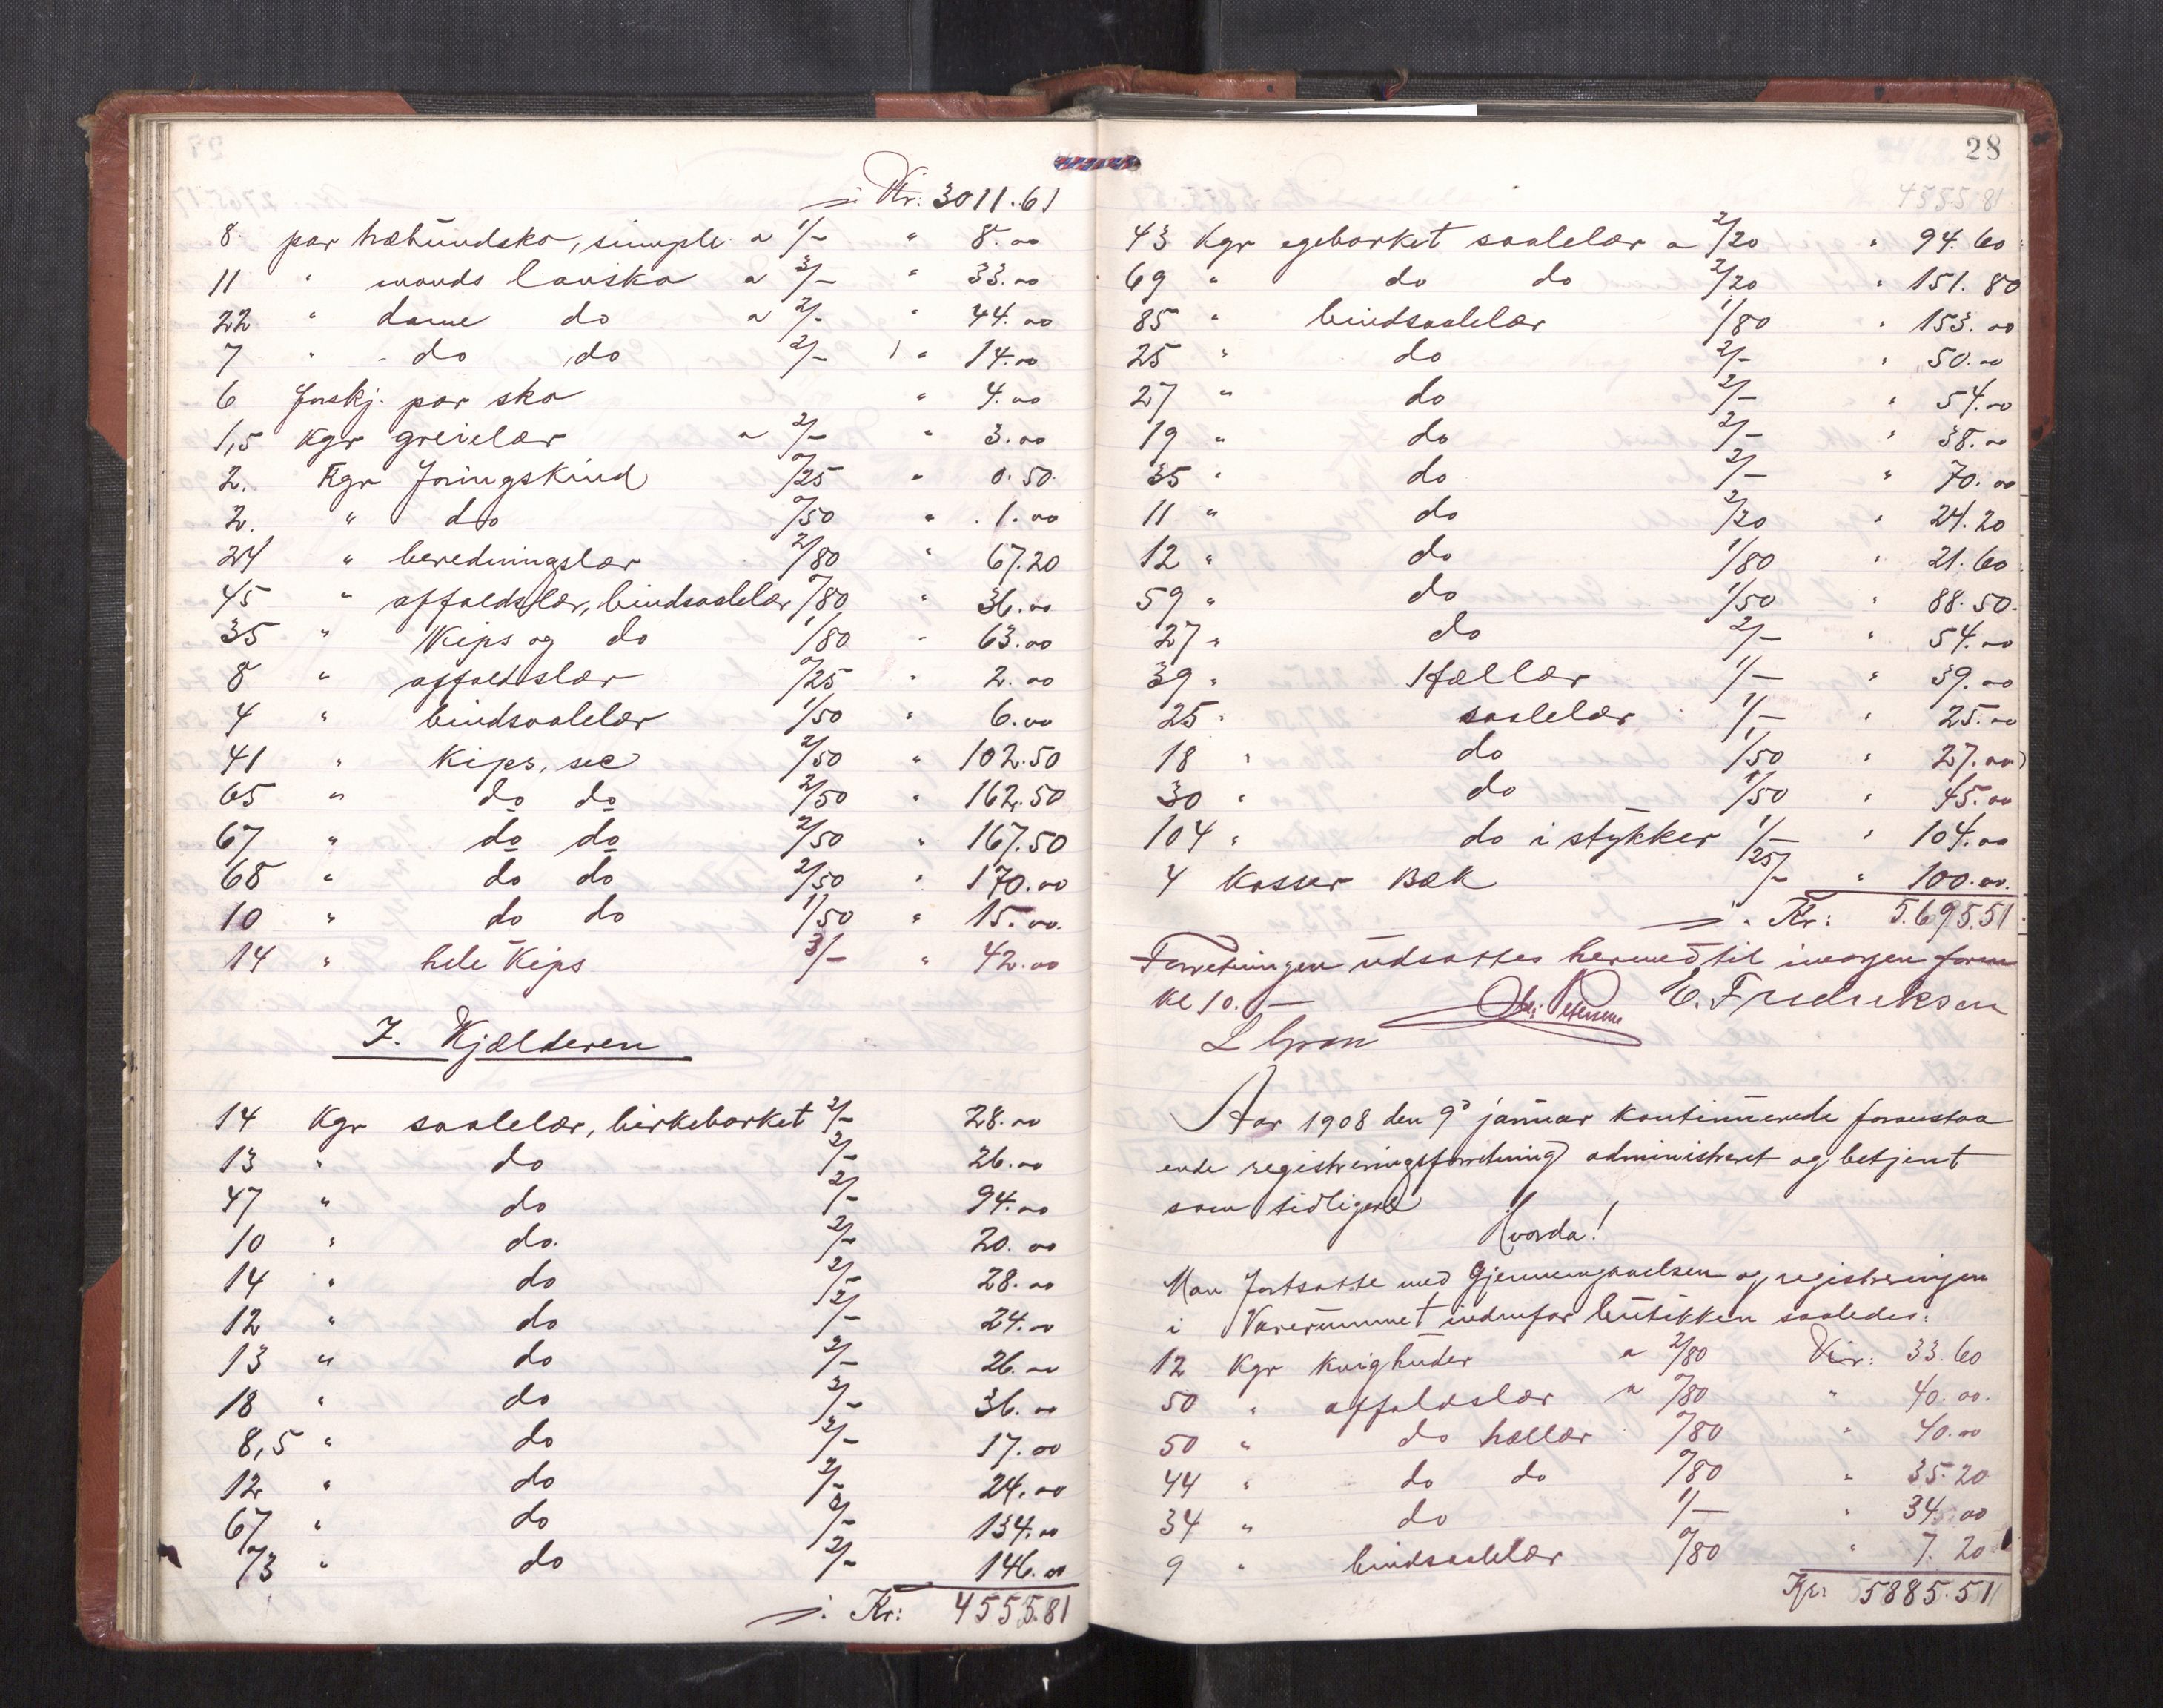 ./. Kr: 3011.61
8 par træbundsko, simple a 1/- " 8.00
11 " mands lavsko a 3/- " 33.00
22 " dame do a 2/- " 44.00
7 " do do 2/- " 14.00
6 forskj. par sko " 4.00
1,5 Kgr greielær a 2/- " 3.00
2. Kgr foringskind "/25 " 0.50
2. " do "/50 " 1.00
24 " beredningslær 2/80 " 67.20
45 " affaldslær, bindsaalelær "/80 " 36.00
35 " Kips og do 1/80 " 63.00
8 " affaldslær "/25 " 2.00
4 " bindsaalelær 1/50 " 6.00
41 " Kips, sec 2/50 " 102.50
65 " do do 2/50 " 162.50
67 " do do 2/50 " 167.50
68 " do do 2/50 " 170.00
10 " do do 1/50 " 15.00
14 " hele Kips 3/- " 42.00
I. Kjælderen
14 Kgr saalelær, birkebarket 2/- 28.00
13 " do 2/- 26.00
47 " do 2/- 94.00
10 " do. 2/- 20.00
14 " do 2/- 28.00
12 " do 2/- 24.00
13 " do 2/- 26.00
18 " do 2/- 36.00
8,5 " do 2/- 17.00
12 " do 2/- 24.00
67 " do 2/- 134.00
73 " do 2/- 146.00
./. Kr: 4555.81
28
4555.81
43 Kgr egebarket saalelær a 2/20 " 94.60
69 " do do 2/20 " 151.80
85 " bindsaalelær 1/80 " 153.00
25 " do 2/- " 50.00
27 " do 2/- " 54.00
19 " do 2/- " 38.00
35 " do 2/- " 70.00
11 " do 2/20 " 24.20
12 " do 1/80 " 21.60
59 " do 1/50 " 88.50
27 " do 2/- " 54.00
39 " Hællær 1/- " 39.00
25 " saalelær 1/- " 25.00
18 " do 1/50 " 27.00
30 " do 1/50 " 45.00
104 " do i stykker 1/- " 104.00
4 Kasser Bek 25/- " 100.00
./. Kr: 5.695.51
Forretningen udsattes hermed til imorgen form
Kl 10. — E. Fredriksen
Aar 1908 den 9d januar kontinuerede foranstaa
ende registreringsforretning administreret og betjent
som tidligere
Hvorda!
Man fortsatte med Gjennemgaaelsen og registreringen
i Varerummet indenfor butikken saaledes:
12 Kgr kvighuder a 2/80 Kr: 33.60
50 " affaldslær a "/80 " 40.00
50 " do hællær "/80 " 40.00
44 " do do "/80 " 35.20
34 " do 1/- " 34.00
9 " bindsaalelær "/80 " 7.20
Kr 5885.51